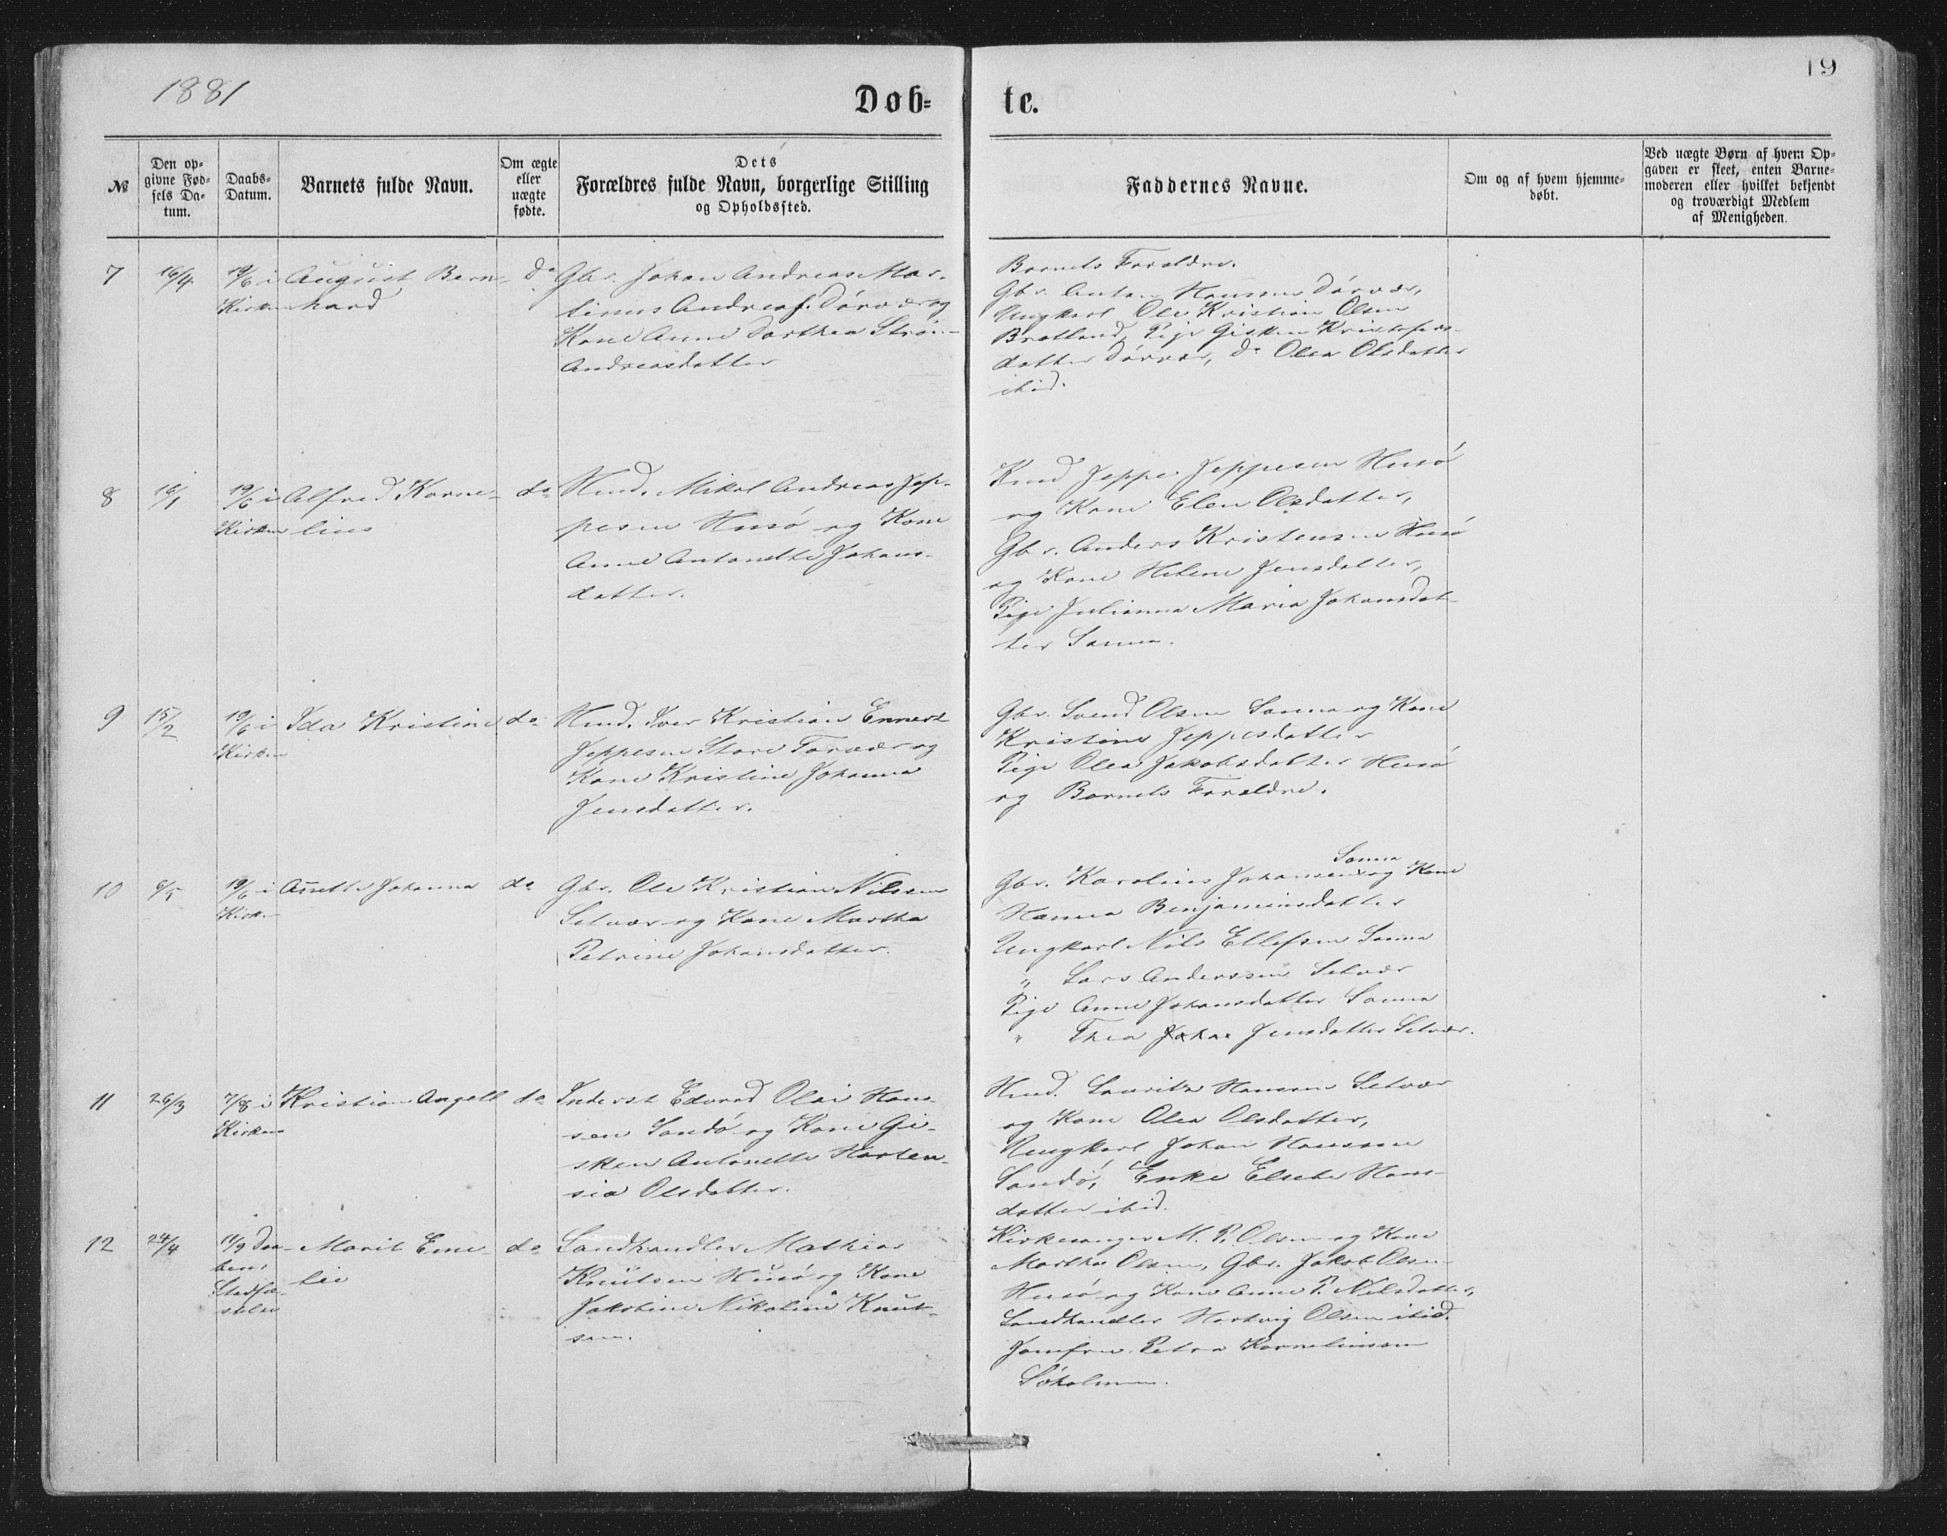 1881
Døb=
te.
19
№
Den op=
givne Fød=
sels Da=
tum.
Daabs=
Datum.
Barnets fulde Navn.
Om ægte
eller
uægte
fødte.
Dets
Forældres fulde Navn, borgerlige Stilling
og Opholdssted.
Faddernes Navne.
Om og af hvem hjemme=
døbt.
Ved uægte Børn af hvem Op=
gaven er skeet, enten Barne=
moderen eller hvilket bekjendt
og troværdigt Medlem
af Menigheden.
7 16/4 19/6 i
Kirken
August Bern-
hard
do
Gbr. Johan Andreas Mar-
tinus Andreas. Dørvær og
Kone Anne Dorthea Strøm
Andreasdatter
Barnets Forældre.
Gbr. Anton Hansen Dørvær,
Ungkarl Ole Kristian Olsen
Bratland, Pige Gisken Kristofers-
datter Dørvær, do Olea Olsdatter
ibid.
8 18/1 19/6 i
Kirken
Alfred Korne-
lius
do
Hmd. Mikal Andreas Jep-
pesen Husø og Kone
Anne Antonette Johans-
datter.
Kmd Jeppe Jeppesen Husø
og Kone Elen Olsdatter,
Gbr. Anders Kristensen Husø
og Kone Helene Jensdatter,
Pige Julianna Maria Johansdat-
ter Sanna.
9 15/2 19/6 i
Kirken
Ida Kristine
do
Hmd. Iver Kristian Ennert
Jeppesen Store Forvær og
Kone Kristine Johanna
Jensdatter.
Gbr. Svend Olsen Sanna og Kone
Kristine Jeppesdatter
Pige Olea Jakobsdatter Husø
og Barnets Forældre.
10 6/5 19/6 i
Kirk
Anette Johanna
do
Gbr. Ole Kristian Nilsen
Selvær og Kone Martha
Petrine Johansdatter.
Sanna
Gbr. Karolius Johansen og Kone
Hanna Benjaminsdatter
Ungkarl Nils Ellefsen Sanna
" Lars Anderssen Selvær
Pige Anne Johansdatter Sanna
" Thea Johan Jensdatter Selvær.
11 26/3 7/8 i
Kirken
Kristian Angell
do
Inderst Edvard Olai Han-
sen Sandø og Kone Gi-
sken Antonette Horten-
sia Olsdatter.
Hmd. Lauritz Hansen Selvær
og Kone Olea Olsdatter,
Ungkarl Johan Hansen
Sandø, Enke Elsebe Hans-
datter ibid.
12 24/4 11/9
Marit Eme-
lie
do
Landhandler Mathias
Knutsen Husø og Kone
Jakobine Nikoline Knut-
sen.
Kirkesanger M. P. Olsen og Kone
Martha Olsen, Gbr. Jakob Olsen
Husø og Kone Anne P. Nilsdatter,
Landhandler Hartvig Olsen ibid.
Jomfru Petra Korneliussen